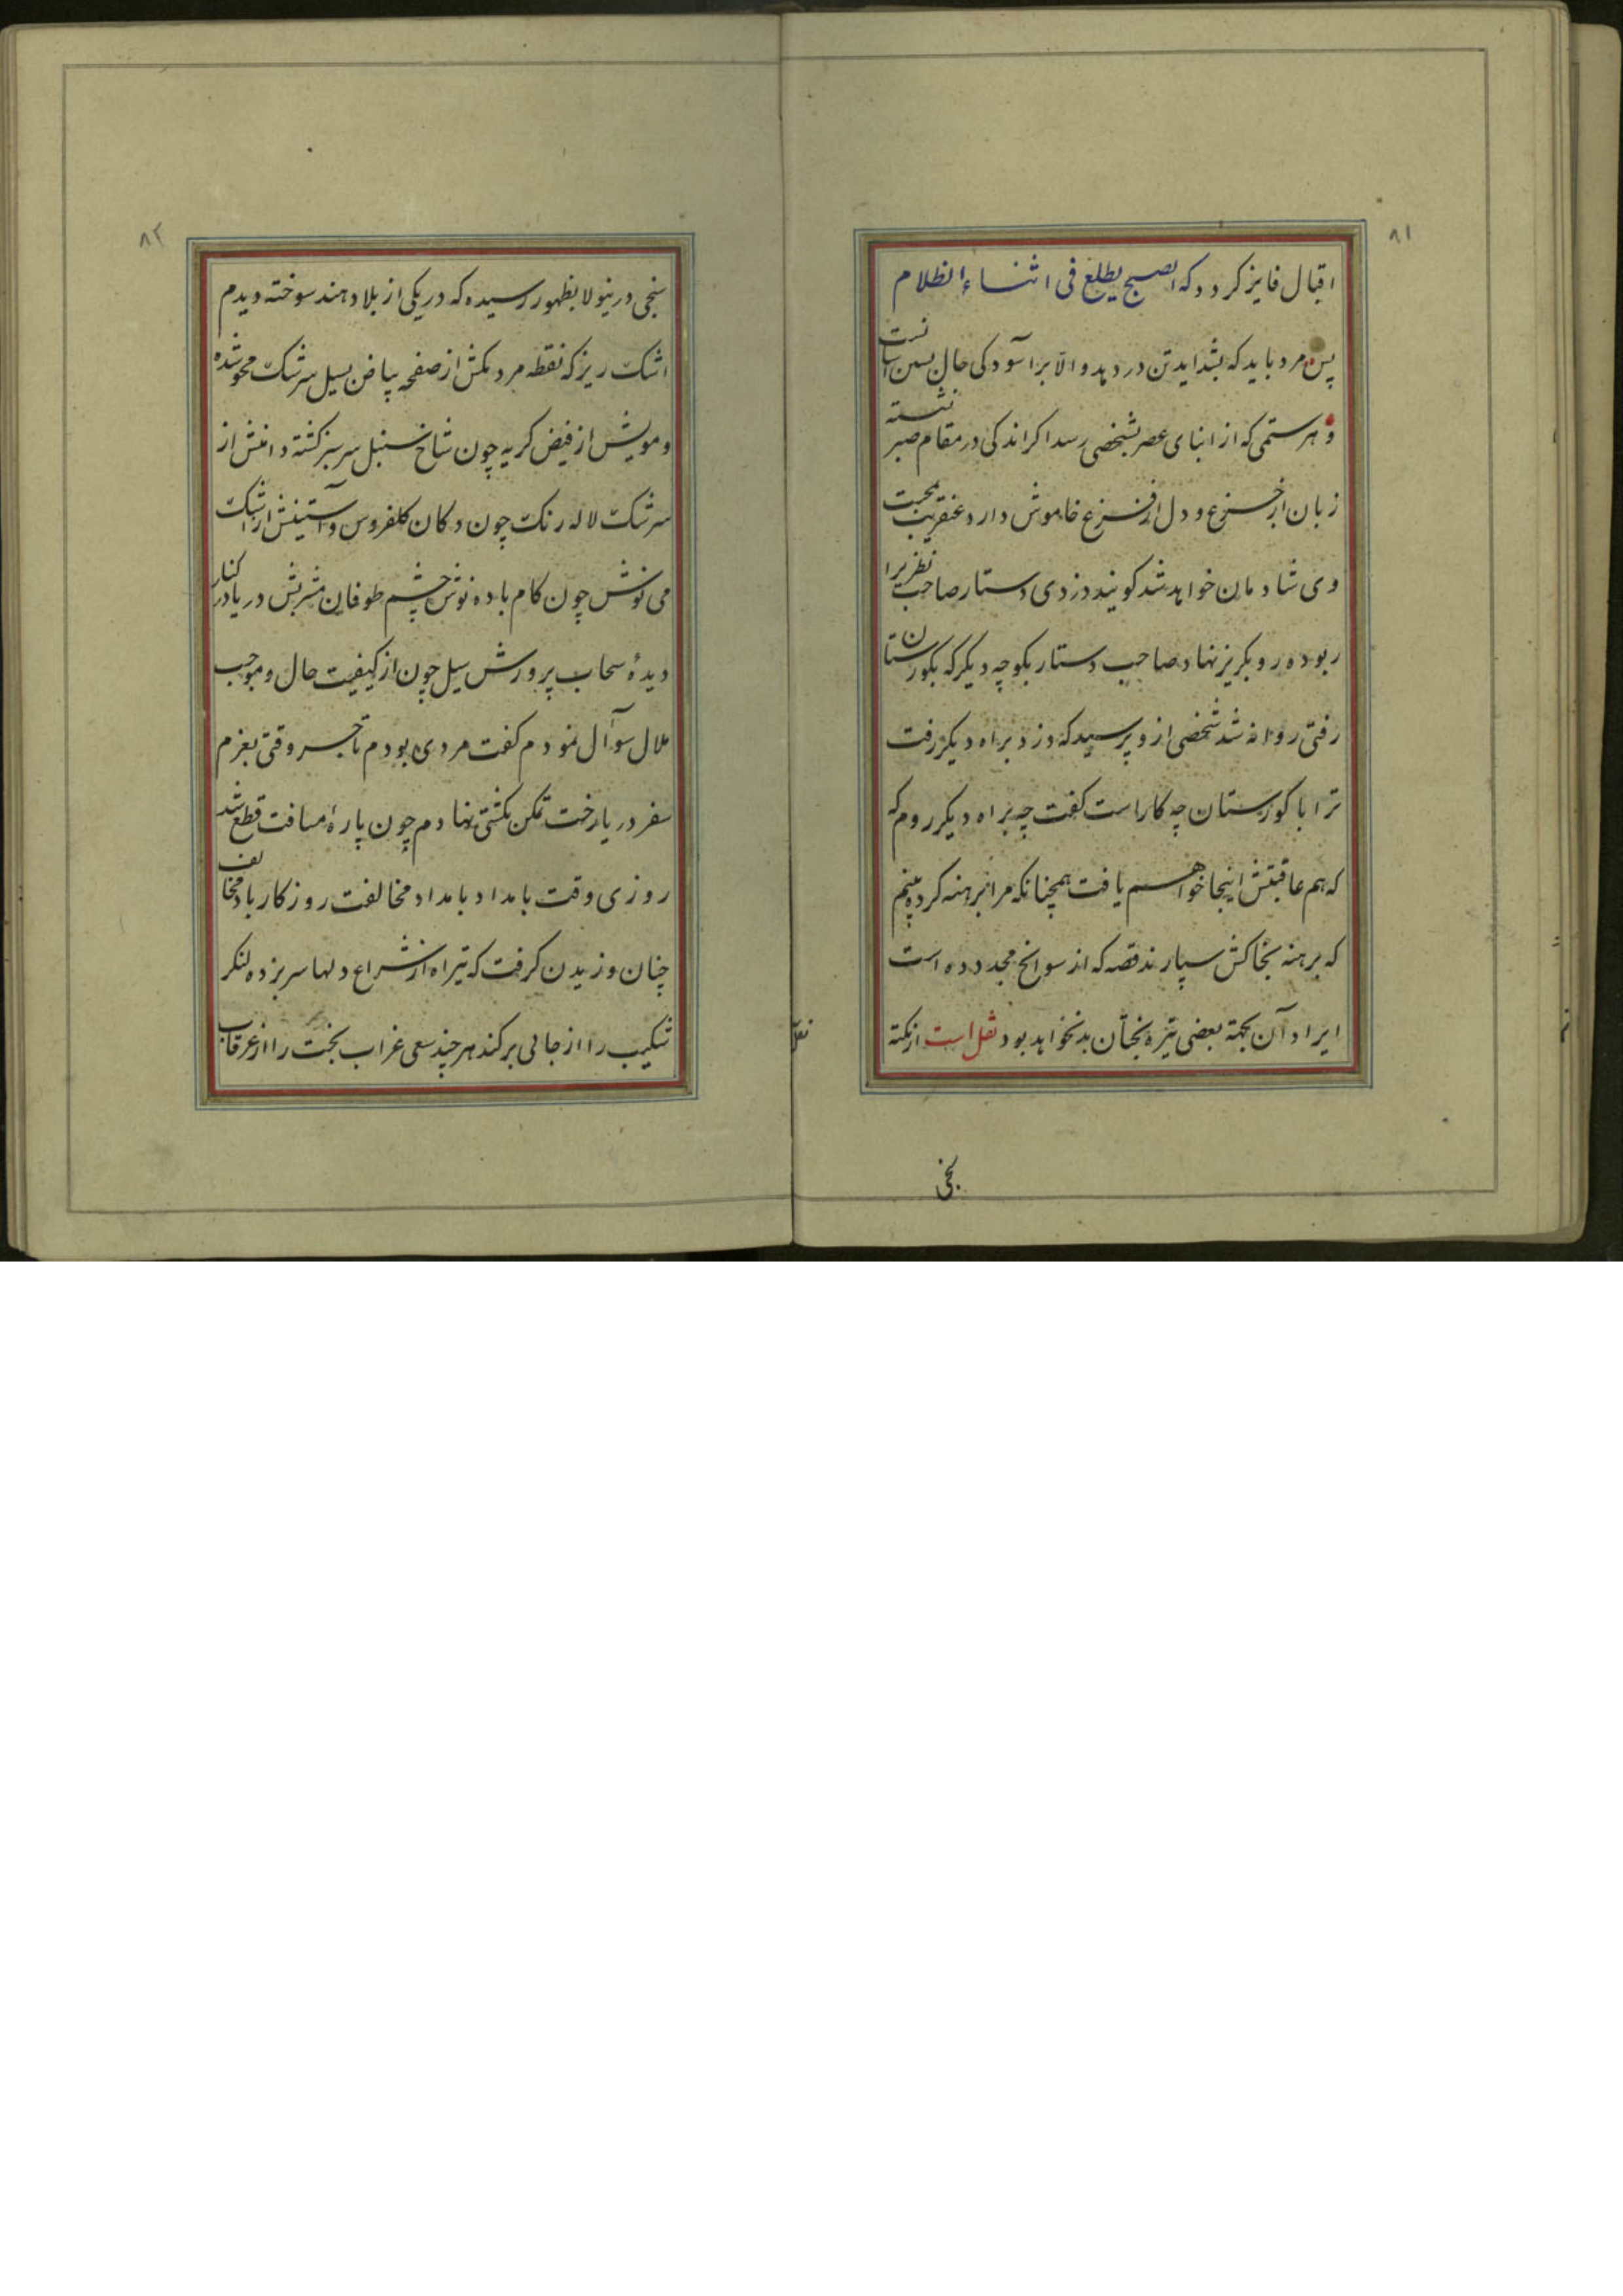 ۸۱
اقبال فایز کردد که الصبح یطلع فی اثناء الظلام
پس مرد باید که بشداید تن دردهد والا برآسودکی جال بسی آسانست
و هر ستمی که از ابنای عصر بشخصی رسد اکر اندکی در مقام صبر نشسته
زبان از جزع و دل از فزع خاموش دارد عنقریب بمحبت
وی شادمان خواهد شد کویند دزدی دستار صاحب نظریرا
ربوده رو بکریز نهاد صاحب دستار بکوچه دیکر که بکورستان
رفتی روانه شد شخصی ازو پرسید که دزد براه دیکر رفت
ترا با کورستان چه کار است کفت چه براه دیکر روم که
که هم عاقبتش اینجا خواهم یافت همچنانکه مرا برهنه کرد بینم
که برهنه بخاکش سپارند قصه که از سوانح مجدده است
ایراد آن بجهة بعضی تیره بختان بد نخواهد بود نقل است از نکته
۸۲
سنجی درینولا بظهور رسیده که در یکی از بلاد هند سوخته دیدم
اشک ریز که نقطه مردمکش از صفحه بیاض بسیل سرشک محو شده
و مویش از فیض کریه چون شاخ سنبل سرسبز کشته دامنش از
سرشک لاله رنک چون دکان کلفروس و آستینش از اشک
می نوش چون کام باده نوش چشم طوفان مشربش دریا در کنار
دیدهٔ سحاب پرورش سیل چون از کیفیت حال و موجب
ملال سوآل نمودم کفت مردی بودم تاجر وقتی بعزم
سفر دریا رخت تمکن بکشتی نهادم چون پارهٔ مسافت قطع شد
روزی وقت بامداد بامداد مخالفت روزکار باد مخالف
چنان وزیدن کرفت که تیر آه از شراع دلها سر بزده لنکر
شکیب را از جای برکند هر چند سعی غراب بخت را از غرقاب